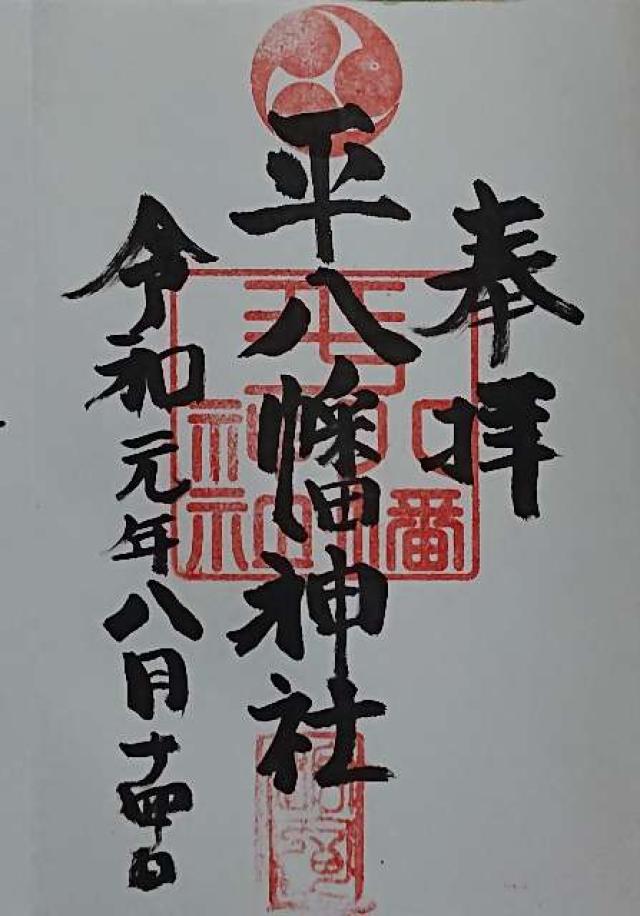 奉拝
平八幡神社
令和元年八月十四日